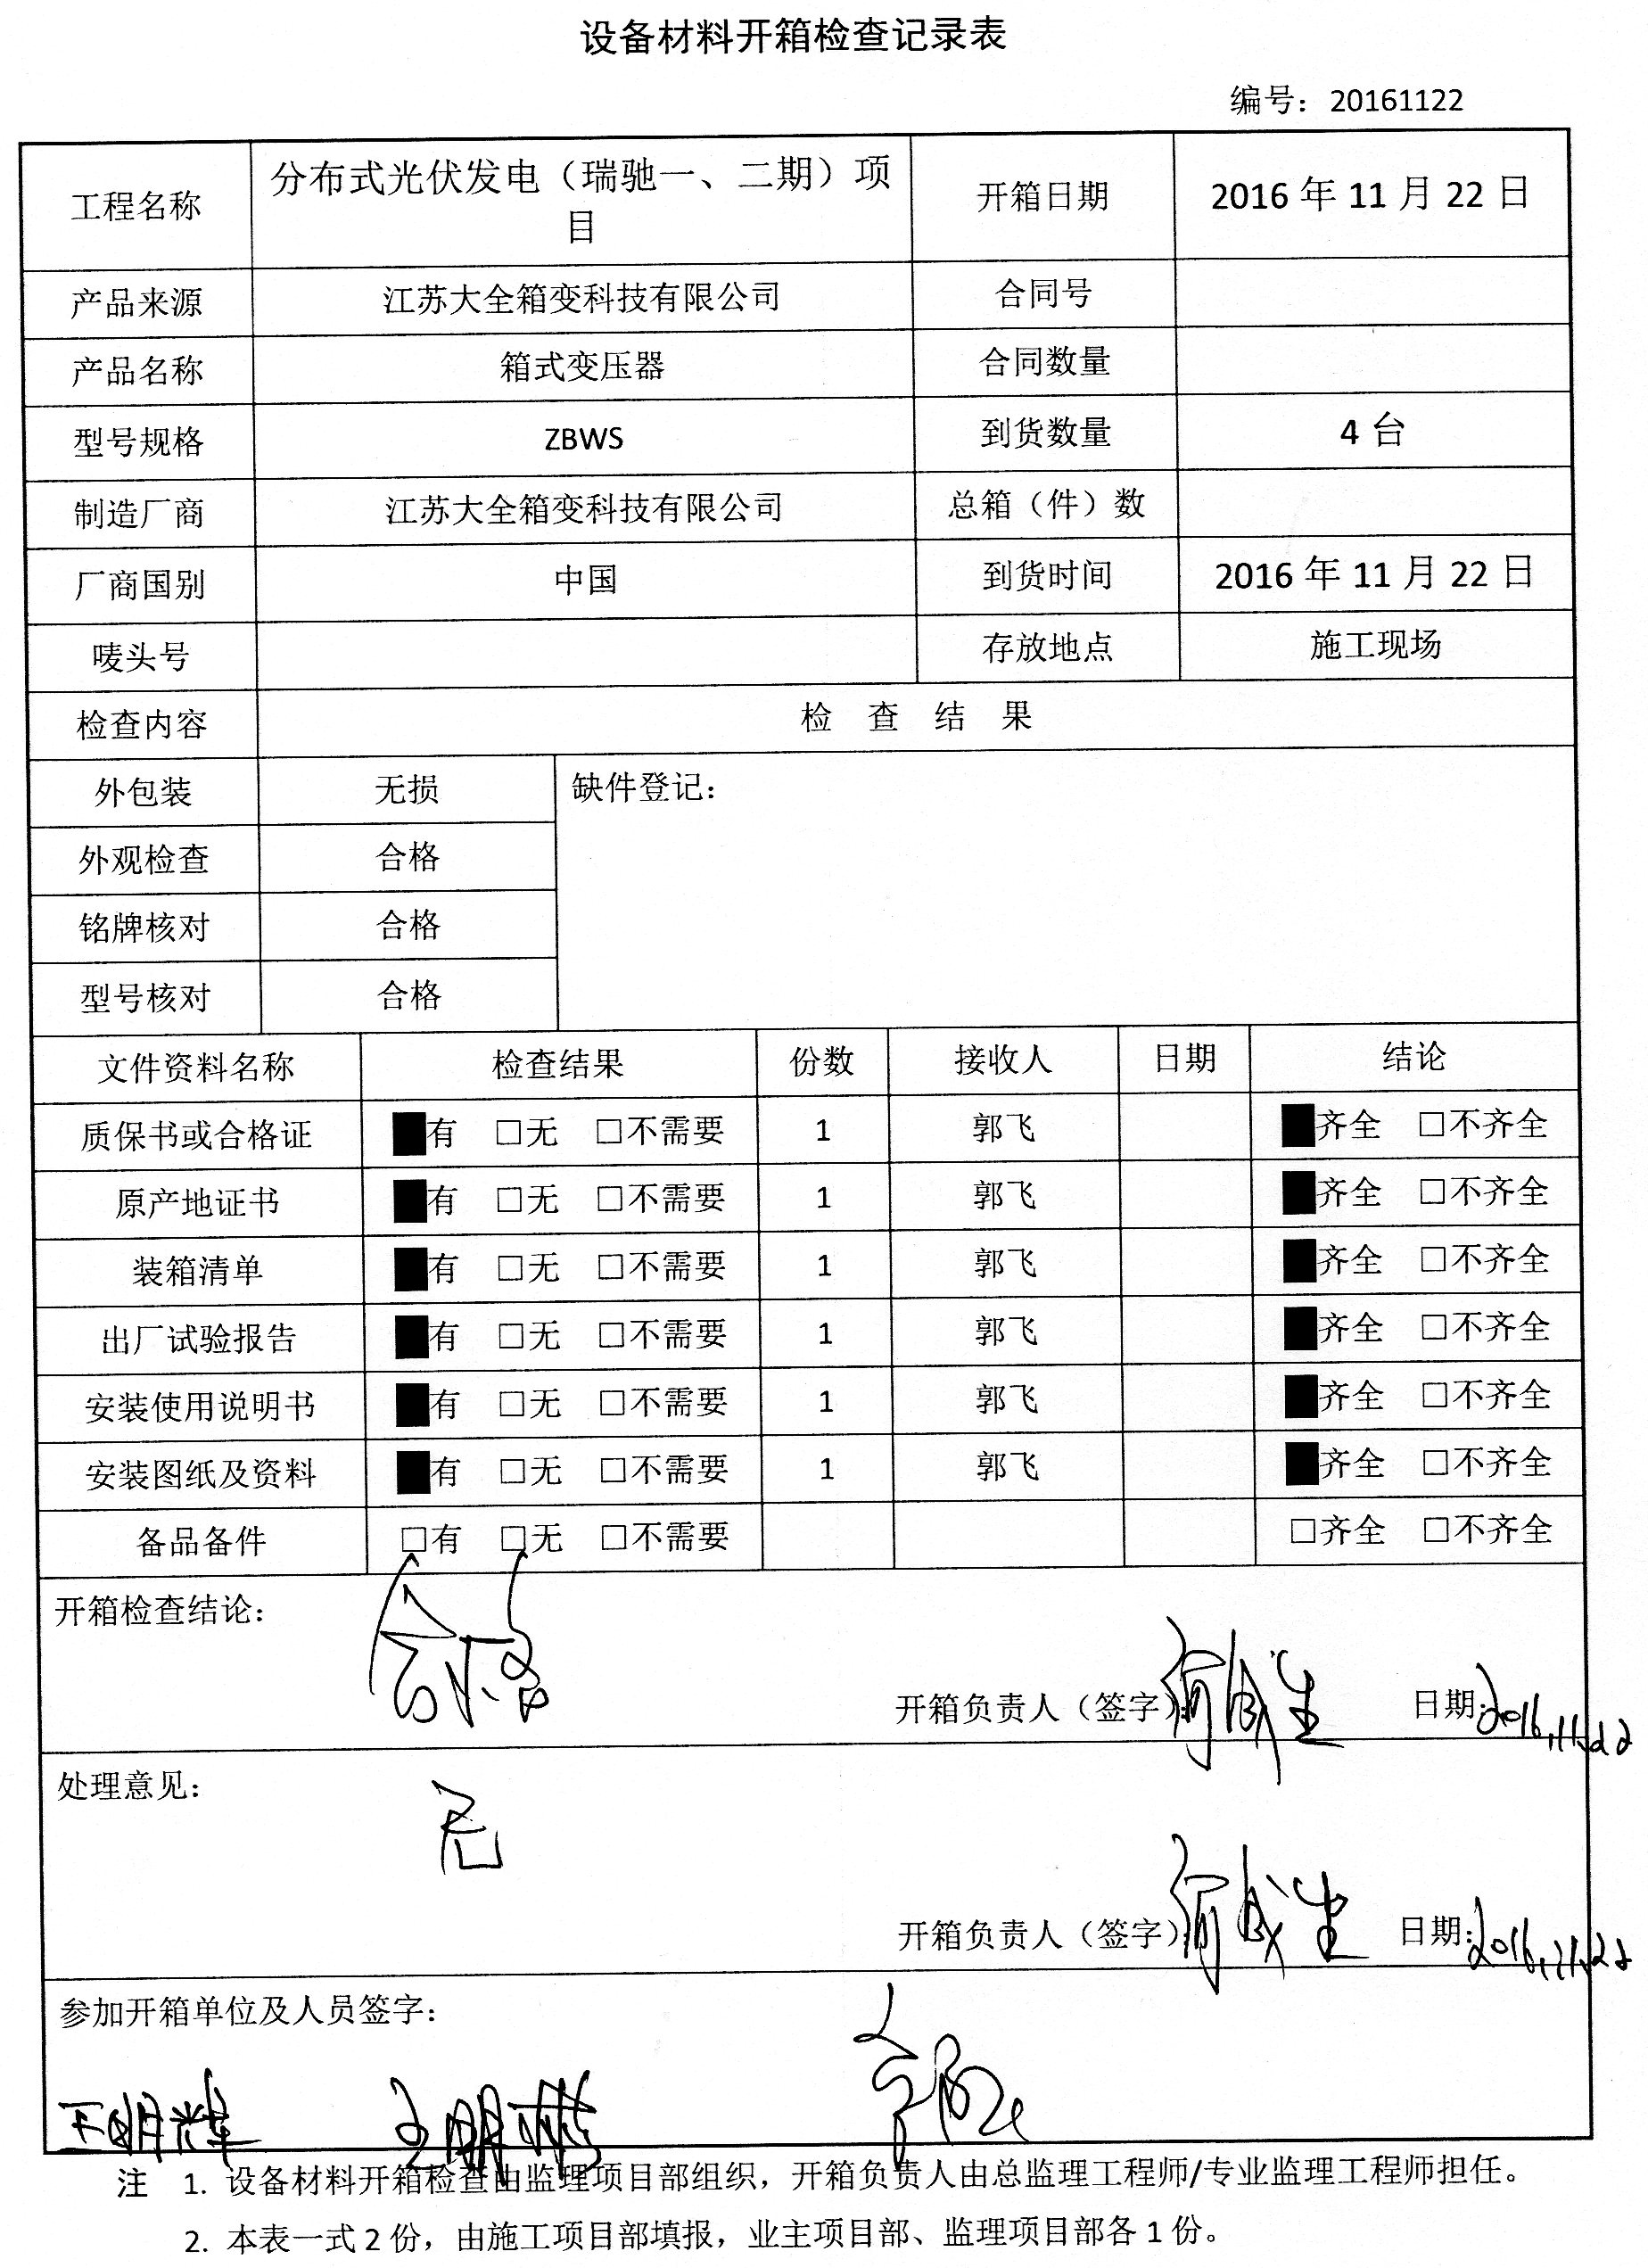 设备材料开箱检查记录表
编号：20161122
工程名称 分布式光伏发电（瑞驰一、二期）项 开箱日期 2016 年 11 月 22 日
目
产品来源 江苏大全箱变科技有限公司 合同号
产品名称 箱式变压器 合同数量
型号规格 ZBWS 到货数量 4 台
制造厂商 江苏大全箱变科技有限公司 总箱（件）数
厂商国别 中国 到货时间 2016 年 11 月 22 日
唛头号 存放地点 施工现场
检查内容 检 查 结 果
外包装 无损 缺件登记：
外观检查 合格
铭牌核对 合格
型号核对 合格
文件资料名称 检查结果 份数 接收人 日期 结论
质保书或合格证 ■有 □无 □不需要 1 郭飞 ■齐全 □不齐全
原产地证书 ■有 □无 □不需要 1 郭飞 ■齐全 □不齐全
装箱清单 ■有 □无 □不需要 1 郭飞 ■齐全 □不齐全
出厂试验报告 ■有 □无 □不需要 1 郭飞 ■齐全 □不齐全
安装使用说明书 ■有 □无 □不需要 1 郭飞 ■齐全 □不齐全
安装图纸及资料 ■有 □无 □不需要 1 郭飞 ■齐全 □不齐全
备品备件 □有 □无 □不需要 □齐全 □不齐全
开箱检查结论：
合格
开箱负责人（签字） 日期：2016.11.22
处理意见：
无
开箱负责人（签字） 日期：2016.11.22
参加开箱单位及人员签字：
王明辉
注 1. 设备材料开箱检查由监理项目部组织，开箱负责人由总监理工程师/专业监理工程师担任。
2. 本表一式 2 份，由施工项目部填报，业主项目部、监理项目部各 1 份。